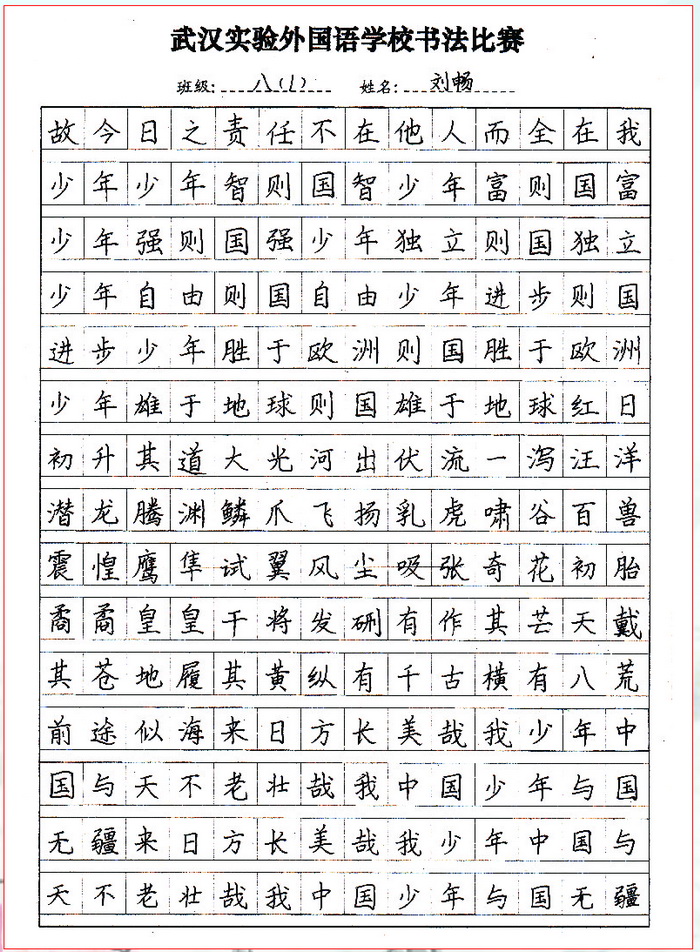 武汉实验外国语学校书法比赛
班级: 八(1) 姓名: 刘畅
故今日之责任不在他人而全在我
少年少年智则国智少年富则国富
少年强则国强少年独立则国独立
少年自由则国自由少年进步则国
进步少年胜于欧洲则国胜于欧洲
少年雄于地球则国雄于地球红日
初升其道大光河出伏流一泻汪洋
潜龙腾渊鳞爪飞扬乳虎啸谷百兽
震惶鹰隼试翼风尘吸张奇花初胎
矞矞皇皇干将发硎有作其芒天戴
其苍地履其黄纵有千古横有八荒
前途似海来日方长美哉我少年中
国与天不老壮哉我中国少年与国
无疆来日方长美哉我少年中国与
天不老壮哉我中国少年与国无疆